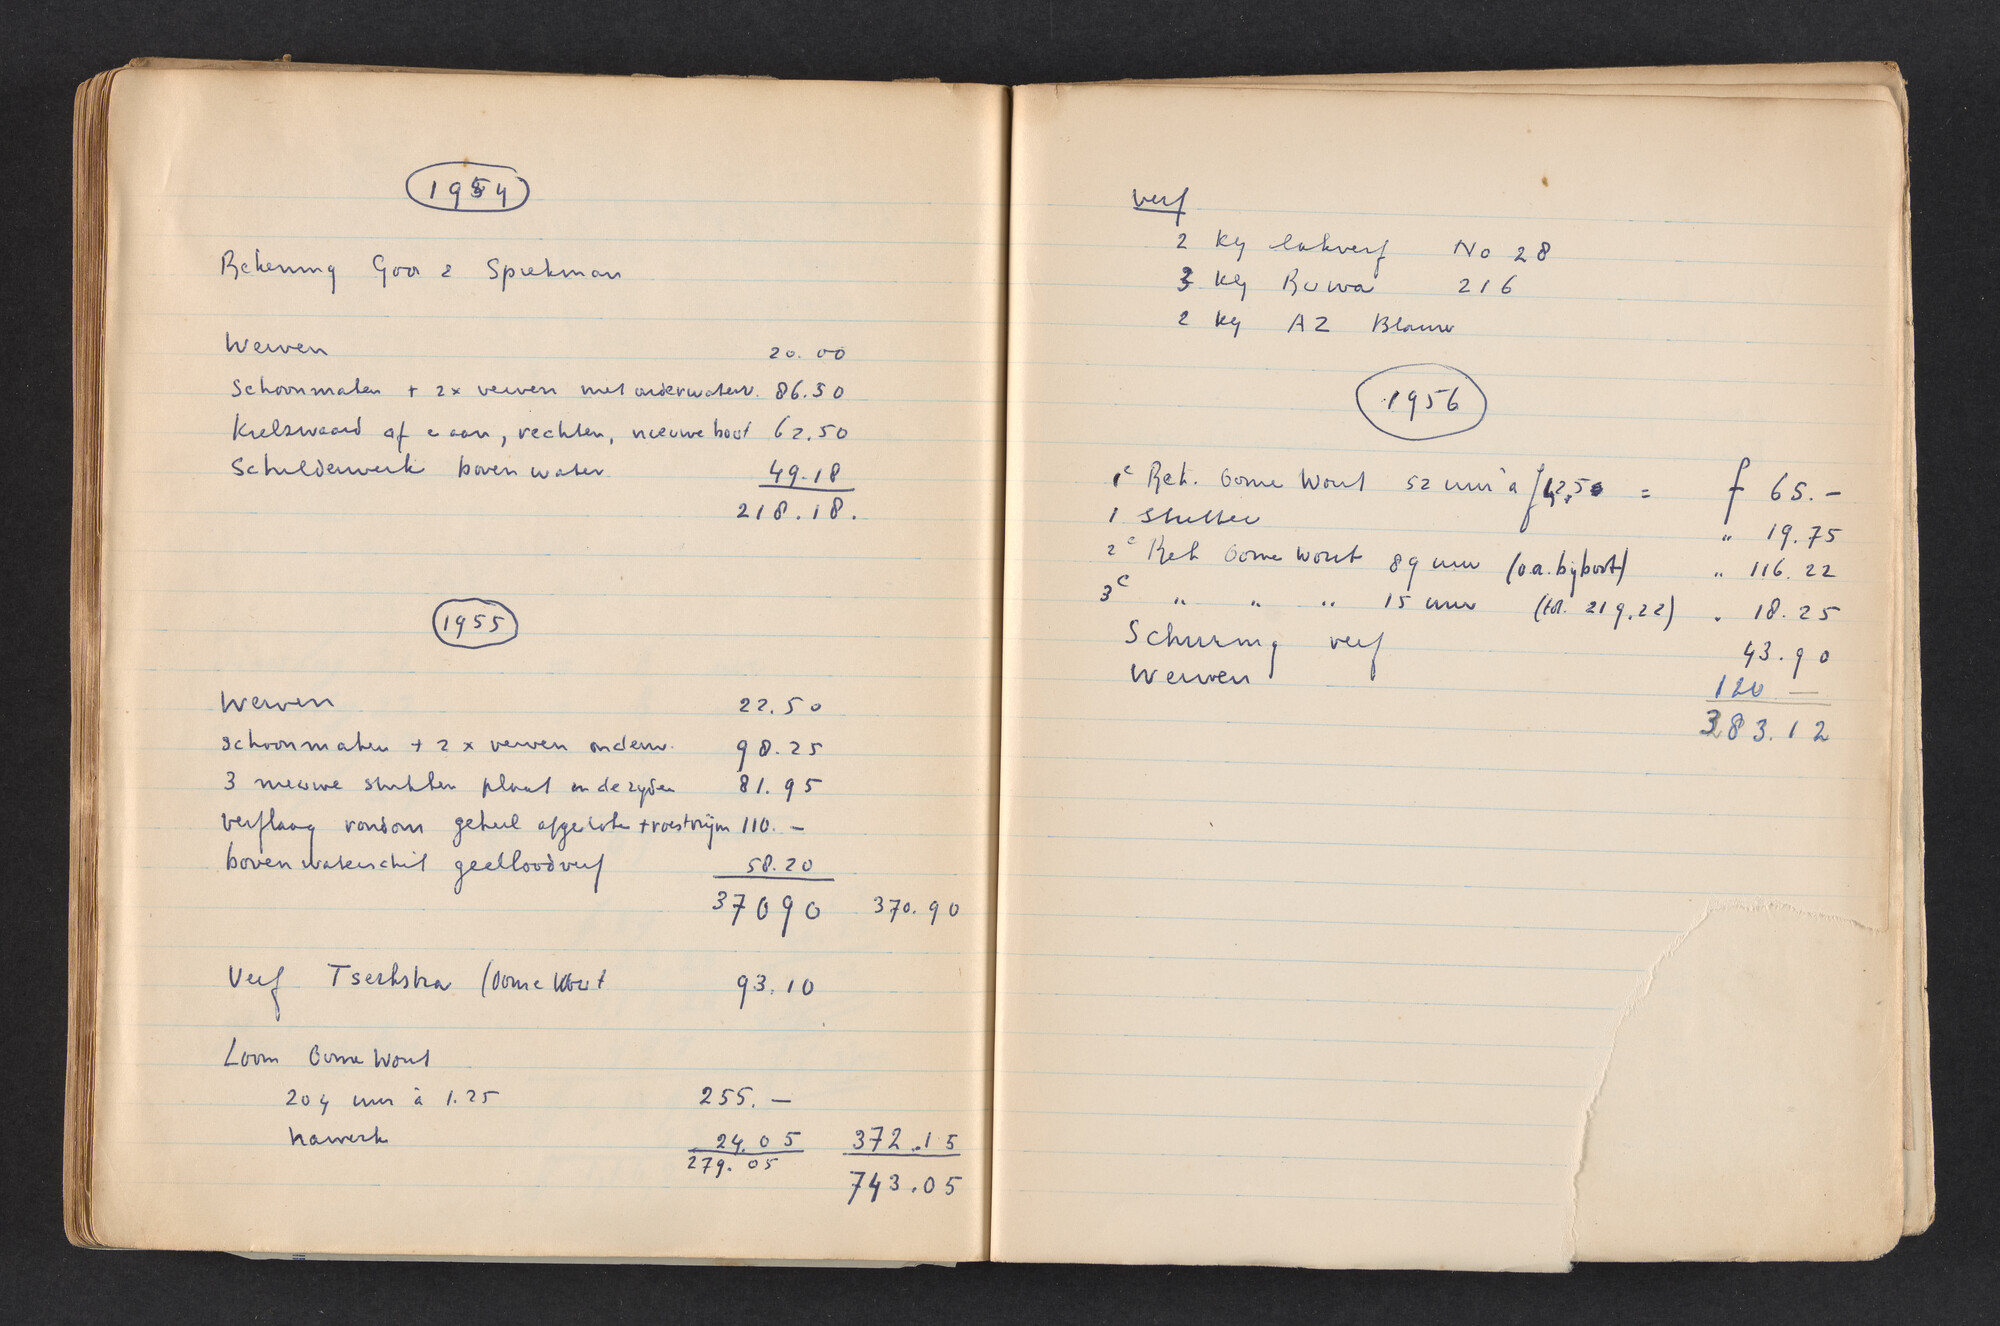 1954
Rekening Goor & Spiekman
Werven 20.00
Schoonmaken + 2x verven met onderwaterv. 86.50
Kielzwaard af e aan, rechten, nieuwe bout 62.50
Schilderwerk boven water 49.18
218.18.
1955
Werven 22.50
schoonmaken + 2 x verven onderw. 98.25
3 nieuwe stukken plaat onderzijden 81.95
verflaag rondom geheel + roestvrijm 110. –
boven waterschil geelloodverf 58.20
37090 370.90
Verf Tserkstra (Oome Wout 93.10
Loon Oome Wout
204 uur à 1.25 255. –
nawerk 24.05 372.15
279.05
743.05
Verf
2 kg lakverf No 28
3 kg Ruwa 216
2 kg AZ Blauw
1956
1e Rek. Oome Wout 52 uur à = f 65. –
1 " 19.75
2e Rek Oome Wout 89 uur (o.a. bijboot) " 116.22
3e " " " 15 uur (tot. 219.22) " 18.25
Schuring verf 43.90
Werven 120 –
383.12